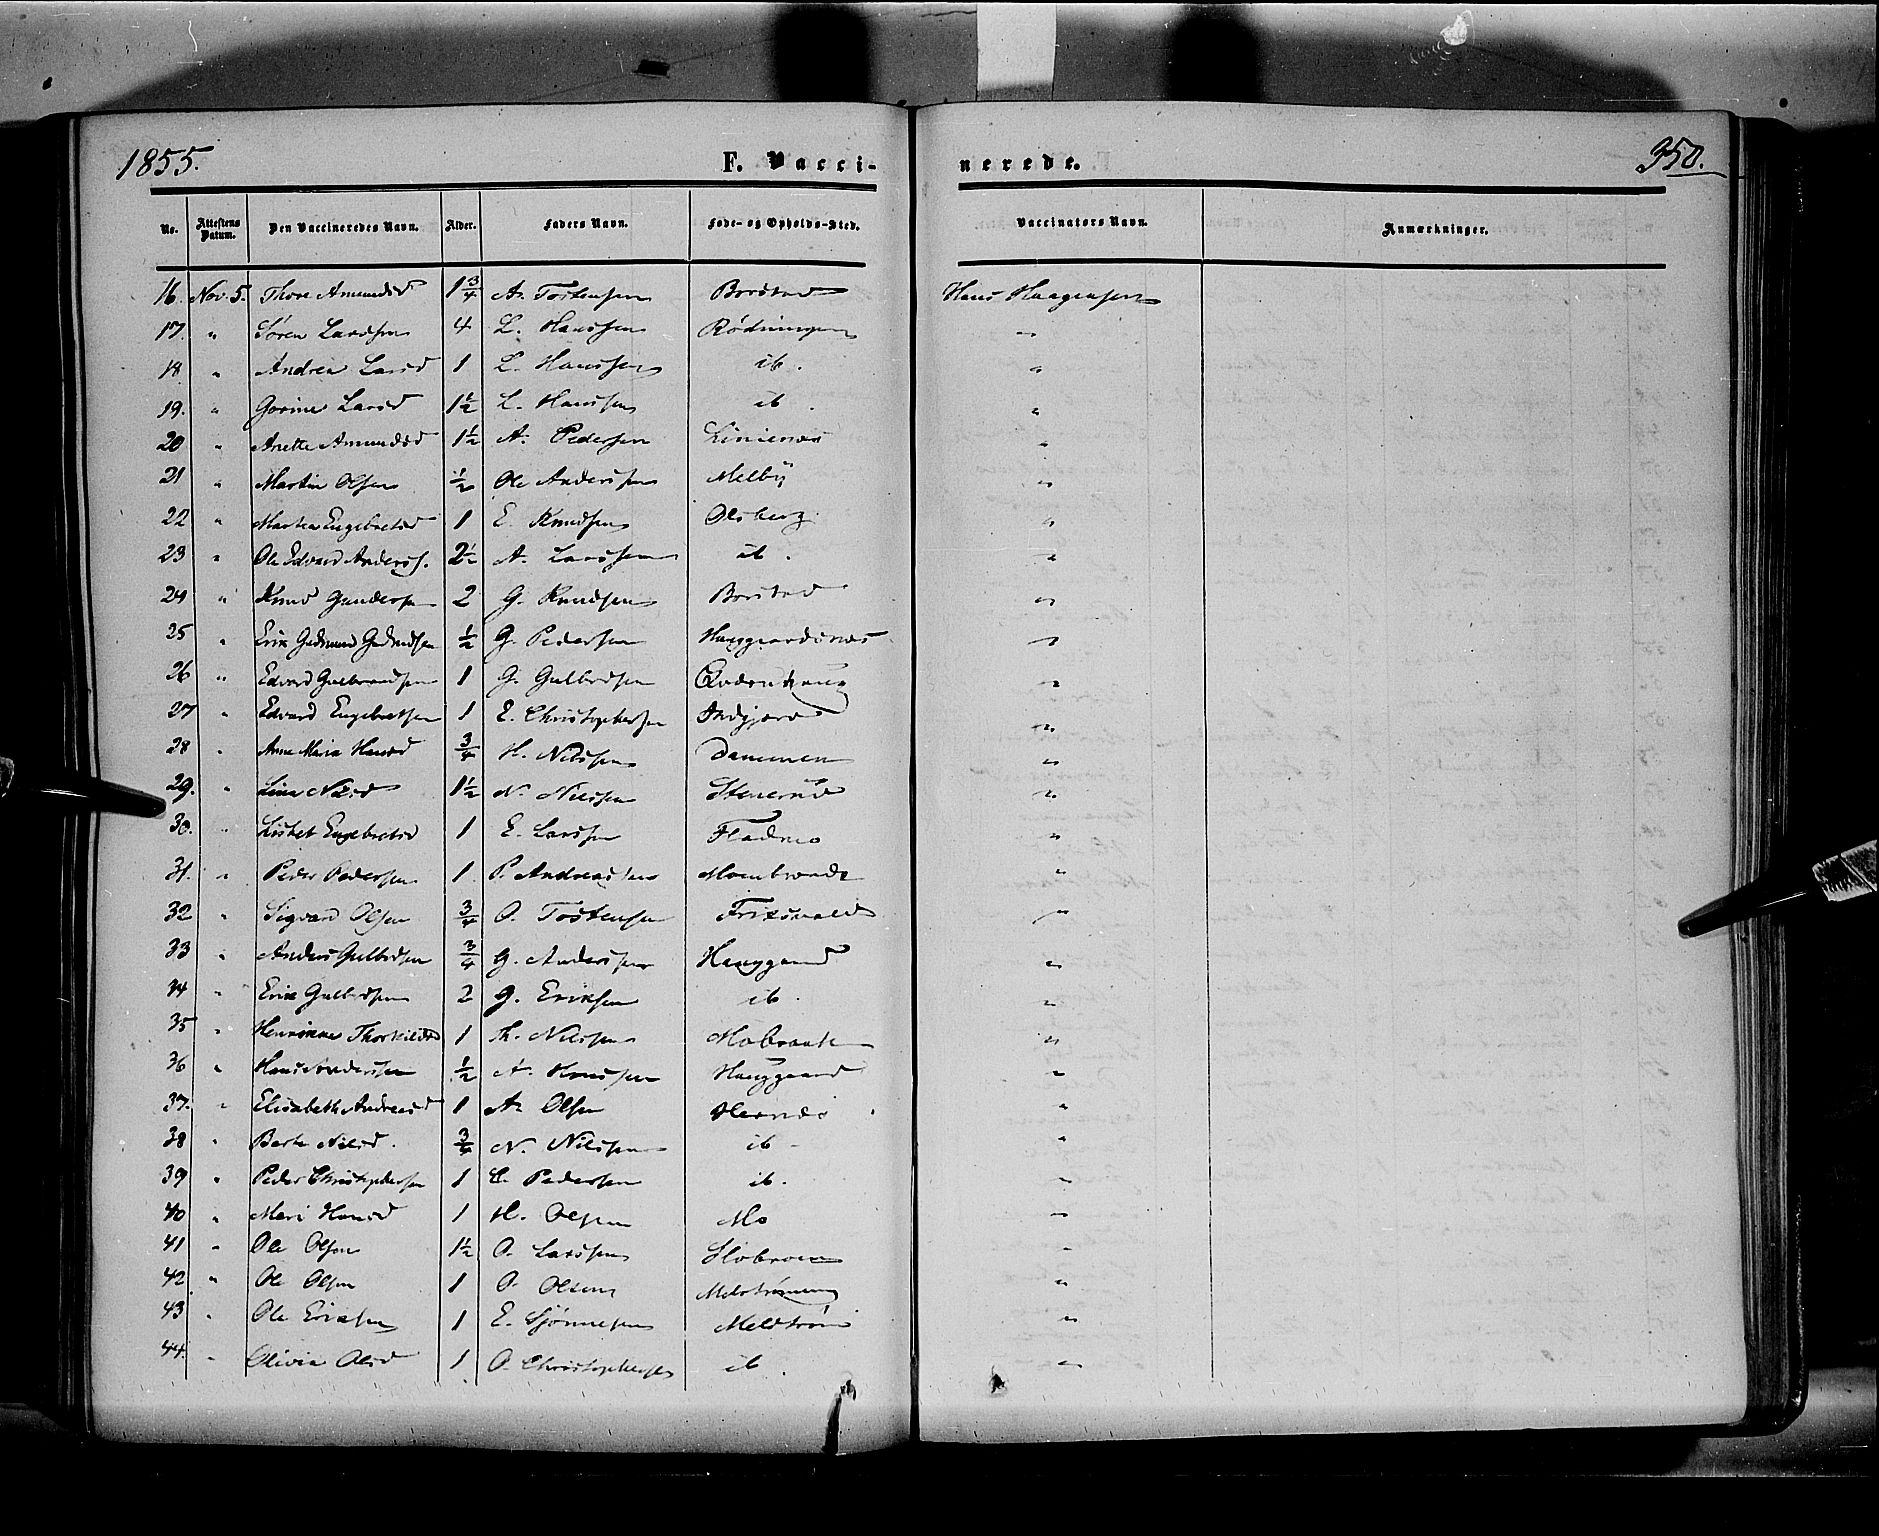 1855.
F. Vacci-
nerede.
350.
No. Attestens Datum. Den Vaccineredes Navn. Alder. Faders Navn. Føde- og Opholds-Sted. Vaccinators Navn. Anmærkninger.
16. Nov. 5. Thore Amundsd 1 3/4 A. Tostensen Borstad Hans Haagensen
17. " Søren Larssen 4 L. Hanssen Rødningen "
18 " Andrea Larsd 1 L. Hanssen ib. "
19. " Larsd 1 1/2 L. Hanssen ib. "
20 " Anette Amundsd 1 1/2 A. Pedersen "
21 " Martin Olsen 1/2 Ole Anderssen Melby "
22 " Marthe Engebretsd 1 E. Knudsen Olsberg "
23 " Ole Edvard Anderss. 2 1/2 A. Larssen ib. "
24 " Knud Gundersen 2 G. Knudsen Borstad "
25 " Erik 1/2 G. Pedersen Hauggaardsnæs "
26 " Edvard Gulbrandsen 1 G. Gulbrdsen "
27 " Edvard Engebretsen 1 E. Christophersen Indgjord "
28 " Anne Maria Hansd 3/4 H. Nilssen Dammen "
29. " Lina Nilsd 1 1/2 N. Nilssen Stenerud "
30. " Lisbet Engebretsd 1 E. Larssen "
31. " Peder Pedersen 1 P. Andreassen "
32 " Sigvard Olsen 3/4 O. Tostensen "
33 " Anders Gulbrdsen 3/4 G. Anderssen Hauggaard "
34 " Erik Gulbrdsen 2 G. Eriksen ib. "
35 " Thorkildsd 1 Th. Nilssen "
36 " Hans Anderssen 1/2 A. Hanssen Hauggaard "
37. " Elisabeth Andreasd 1 A. Olsen "
38 " Berte Nilsd. 3/4 N. Nilssen ib "
39 " Peder Christophersen 1 C. Pedersen ib. "
40 " Mari Hansd 1 H. Olsen Mo "
41 " Ole Olsen 1 1/2 O. Larssen "
42 " Ole Olsen 1 O. Olsen "
43 " Ole Eriksen 1 E. Meldstrøm "
44. " Olivia Olsd 1 O. Christophersen ib. "